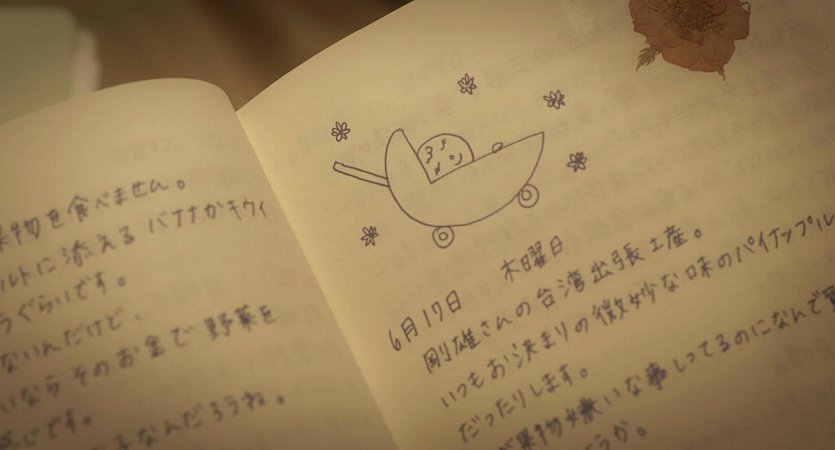 果物を食べません。
ルトに添えるバナナかキウィ
うぐらいです。
ないんだけど、
いならそのお金で野菜を
感じです。
なんだろうね。
6月17日 木曜日
剛雄さんの台湾出張土産。
いつもお決まりの微妙な味のパイナップル
だったりします。
が果物嫌いな事しってるのになんで
うか。